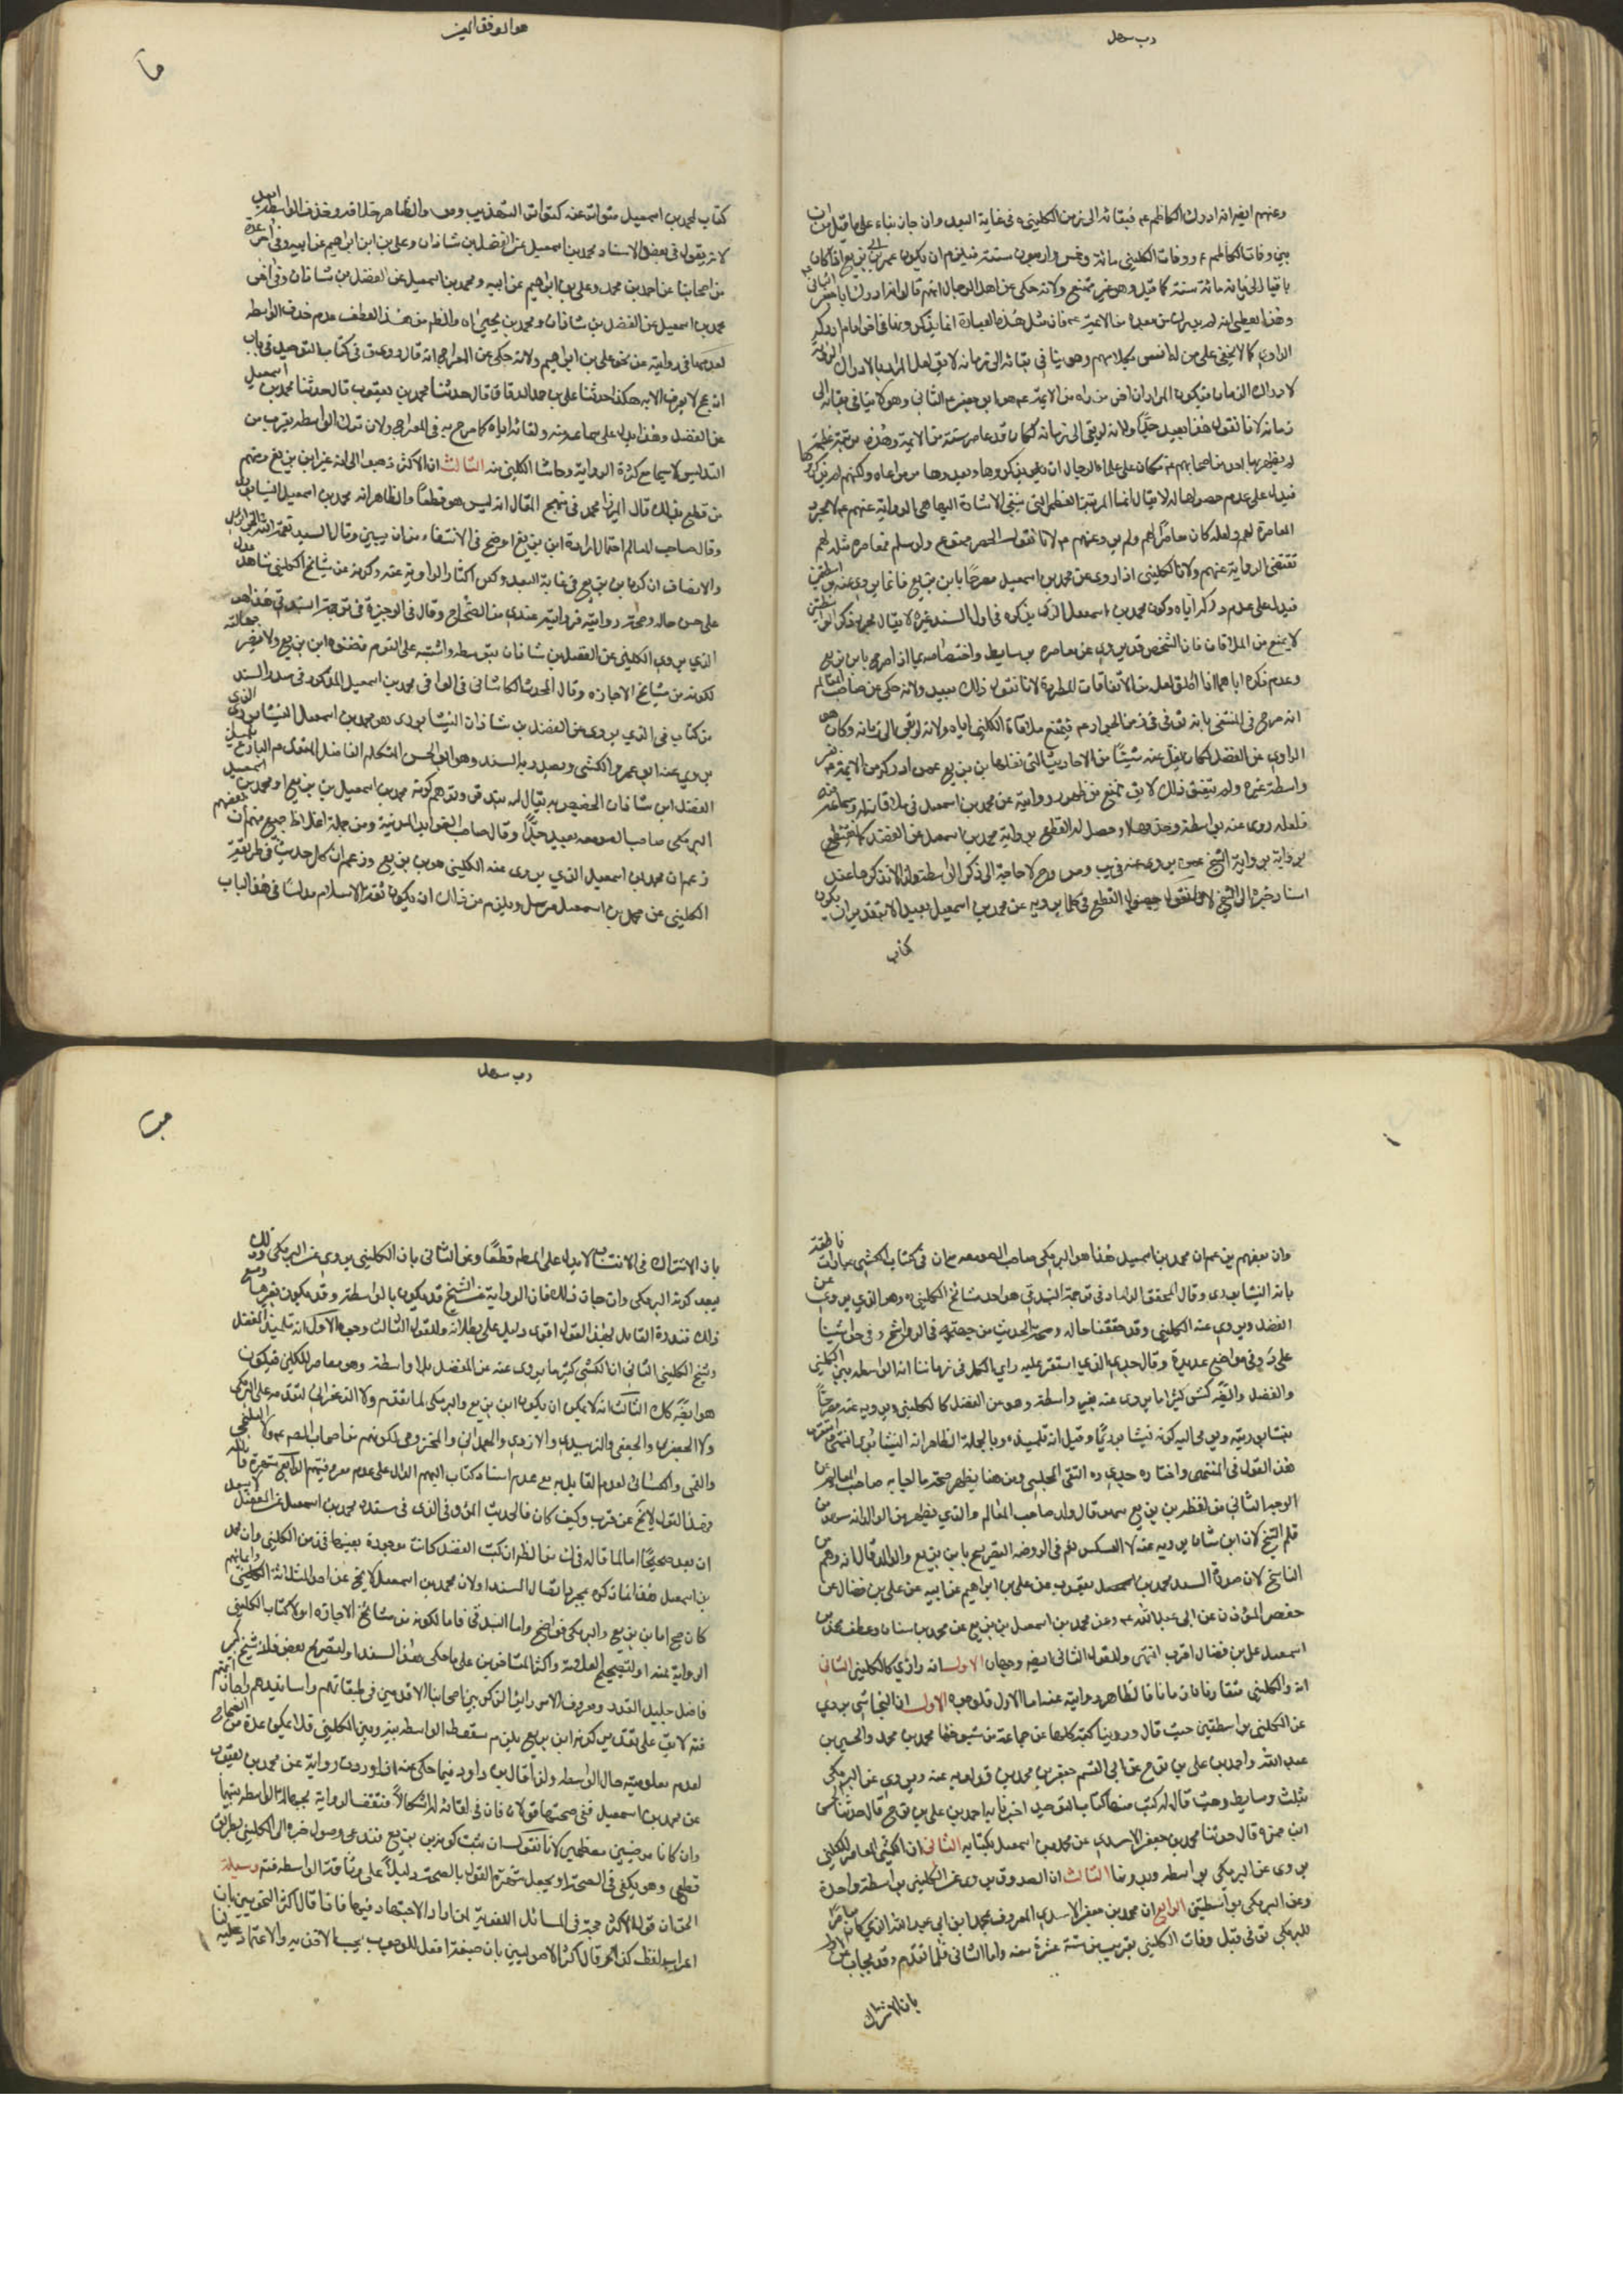 رب سهل
وعنهم ايضا انه ادرك الكاظم ع فبقائه الى زمن الكليني ره في غاية البعد وان جاز بناء على ما قيل من ان
بين وفات الكاظم ع ووفات الكليني مائة وخمس واربعون سنة فيلزم ان يكون عمر ابن بزيع اذا كان
باقيا الى زمانه مائة سنة كما قيل وهو غير ممتنع ولانه حكى عن اهل الرجال انهم قالوا انه ادرك ابا جعفر الثاني ع
وهذا يعطي انه لم يدرك من بعده من الائمة ع فان مثل هذه العبارة انما يذكرونها في اخر امام ادركه
الراوي كما لا يخفى على من له انس بكلامهم وهو ينافي بقائه الى زمانه لا يق لعل المراد بالادراك الرواية
لا ادراك الزمان فيكون المراد ان اخر من راه من الائمة ع هو ابو جعفر ع الثاني وهو لا ينافي بقائه الى
زمانه لانا نقول هذا بعيد جدًّا ولانه لو بقى الى زمانه لكان قد عاصر ستة من الائمة وهذه مرتبة عظيمة
لم يظفر بها احد من اصحابهم ع فكان على علماء الرجال ان يذكروها ويعدوها من مزاياه ولكنهم لم يذكروها
فيدل على عدم حصولها له لا يقال انما المرتبة العظمى التي ينبغي الاشارة اليها هي الرواية عنهم ع لا مجرد
المعاصرة لهم ولعله كان معاصرًا لهم ولم يرو عنهم ع لانا نقول الحصر ممنوع ولو سلم فمعاصرة مثله لهم
تقتضي الرواية عنهم ولان الكليني اذا روى عن محمد بن اسمعيل مصرحًا بابن بزيع فانما يروي عنه بواسطتين
فيدل على عدم دركه اياه وكون محمد بن اسمعيل الذي يذكره في اول السند غيره لا يقال مجرد ذكر الواسطتين
لا يمنع من الملاقات فان الشخص قد يروي عن معاصره بوسايط واختصاصه بما اذا صرح بابن بزيع
وعدم ذكره اياهما اذا اطلق لعله من الاتفاقات المطردة لانا نقول ذلك بعيد ولانه حكى عن صاحب المعالم
انه صرح في المنتقى بانه توفى في زمن الجواد ع فيمتنع ملاقاة الكليني اياه ولانه لو بقى الى زمانه وكان هو
الراوي عن الفضل لكان ينقل عنه شيئًا من الاحاديث التي نقلها ابن بزيع عمن ادركه من الائمة ع بغير
واسطة غيره ولم يتفق ذلك لا يق يمنع من ظهور رواية عن محمد بن اسمعيل في ملاقاته له وسماعه منه
فلعله روى عنه بواسطة وحذفها وحصل له القطع برواية محمد بن اسمعيل عن الفضل كما يقطع
برواية الشيخ عمن يروى عنه في يب وص ومع ذلك لا حاجة الى ذكر الواسطة ولذا لا نذكرها عند
اسناد خبر الى الشيخ لانا نقول حصول القطع في كلما يرويه عن محمد بن اسمعيل بعيد الا بتقدير ان يكون
كتاب
هو الموفق المعين
كتاب لمحمد بن اسمعيل متواتر عنه كتواتر التهذيب وص والظاهر خلافه وحذف الواسطه بعيد
لانه يقول في بعض الاسناد محمد بن اسمعيل عن الفضل بن شاذان وعلي بن ابراهيم عن ابيه وفي اخر عدة
من اصحابنا عن احمد بن محمد وعلي بن ابراهيم عن ابيه ومحمد بن اسمعيل عن الفضل بن شاذان وفي اخر
محمد بن اسمعيل عن الفضل بن شاذان ومحمد بن يحيى اه والظاهر من هذا العطف عدم حذف الواسطه
لعدمها في رواية عن نحو علي بن ابراهيم ولانه حكى عن المعراج انه قال روى ق في كتاب التوحيد في باب
انه عج لا يعرف الا به هكذا حدثنا علي بن احمد الدقاق قال حدثنا محمد بن يعقوب قال حدثنا محمد بن اسمعيل
عن الفضل وهذا يدل على سماعه منه ولقائه اياه كما صرح به في المعراج ولان ترك الواسطه يقرب من
التدليس لا سيما مع كثرة الرواية وحاشا الكليني منه الثالث ان الاكثر ذهبوا الى انه غير ابن بزيع ومنهم
من قطع بذلك قال الميرزا محمد في منهج المقال انه ليس هو قطعًا والظاهر انه محمد بن اسمعيل النيسابوري
وقال صاحب المعالم احتمال ارادة ابن بزيع اوضح في الانتفاء من ان يبين وقال السيد نعمة الله الجزايري
والانصاف ان كونه ابن بزيع في غاية البعد وكثر اكثار الرواية عنه وكونه من مشايخ الكليني شاهد عدل
على حسن حاله وصحة روايته فروايته عندي من الصحاح وقال في الوجيزة في ترجمة البندقي هذا هو
الذي يروى الكليني عن الفضل بن شاذان بتوسطه واشتبه على القوم فظنوه ابن بزيع ولا يضر جهالته
لكونه من مشايخ الاجازه وقال المحدث الكاشاني في الوافي محمد بن اسمعيل المذكور في صدر السند
من كتاب في الذي يروى عن الفضل بن شاذان النيسابوري هو محمد بن اسمعيل النيشابوري الذي
يروي عنه ابو عمرو الكشي ويصدر به السند وهو ابو الحسن المتكلم الفاضل المتقدم البارع تلميذ
الفضل ابن شاذان الخصيص به يقال له بندقي وتوهم كونه محمد بن اسمعيل بن بزيع او محمد بن اسمعيل
البرمكى صاحب الصومعه بعيد جدًّا وقال صاحب الفوائد المدنية ومن جملة اغلاط جمع منهم ان بعضهم
زعم ان محمد بن اسمعيل الذي يروى عنه الكليني هو ابن بزيع وزعم ان كل حديث في طريقه
الكليني عن محمد بن اسمعيل مرسل ويلزم من ذلك ان يكون ثقة الاسلام مدلسًا في هذا الباب
وان بعضهم يزعم ان محمد بن اسمعيل هذا هو البرمكي صاحب الصومعه مع ان في كتاب الكشي عبارات ناطقة
بانه النيشابوري وقال المحقق الداماد في ترجمة البندقي هو احد مشائخ الكليني ره وهو الذي يروى عن
الفضل ويروى عنه الكليني وقد حققنا حاله وصحة الحديث من جهته في الرواشح وفي حواشينا
على د وفي مواضع عديدة وقال جدي الذي استقر عليه راي الكل في زماننا انه الواسطه بين الكليني
والفضل وايضه كش كثيرًا ما يروى عنه بغير واسطة وهو عن الفضل كالكليني ويرويه عنه مصرحًا
بنيشابوريته ومن حاله كونه نيشابوريًّا وقيل انه تلميذه وبالجملة الظاهر انه النيشابوري انتهى واستقرب
هذا القول في المنتهى واختاره جدي ره التقي المجلسي ومن هنا يظهر صحة ما اجاب به صاحب المعالم عن
الوجه الثاني من لفظ ابن بزيع سهو قال ولد صاحب المعالم والذي يظهر من الوالد انه سهو من
قلم الشيخ لان ابن شاذان يرويه عنه لا العكس نعم في الروضه التصريح بابن بزيع والوالد قال انه وهم من
الناسخ لان صورة السند محمد بن يعقوب عن علي بن ابراهيم عن ابيه عن علي بن فضال عن
حفص المؤذن عن ابي عبد الله ع وعن محمد بن اسمعيل بن بزيع عن محمد بن سنان وعطف محمد بن
اسمعيل على بن فضال اقرب انتهى وللقول الثاني ايضه وجهان الاول انه رازي كالكليني الثاني
انه والكليني متقاربان زمانا فالظاهر روايته عنه اما الاول فلوجوه الاول ان النجاشي يروي
عن الكليني بواسطتين حيث قال وروينا كتبه كلها عن جماعة من شيوخنا محمد بن محمد والحسين بن
عبد الله واحمد بن علي بن نوح عن ابي القسم جعفر بن محمد بن قولويه عنه ويروى عن البرمكي
بثلث وسايط وحيث قال له كتب منها كتاب التوحيد اخبرنا به احمد بن علي بن نوح قال حدثنا الحسن
ابن حمزه قال حدثنا محمد بن جعفر الاسدي عن محمد بن اسمعيل بكتابه الثاني ان الكشي المعاصر للكليني
يروى عن البرمكي بواسطه وبدونها الثالث ان الصدوق يروى عن الكليني بواسطة واحدة
وعن البرمكي بواسطتين الرابع ان محمد بن جعفر الاسدي المعروف بمحمد ابن ابي عبد الله الذي كان معاصرًا
للبرمكي توفى قبل وفات الكليني بقريب من ستة عشرة سنه واما الثاني فلما تقدم وقد يجاب عن الاول
بان الاشتراك
رب سهل
بان الاشتراك في الانتساب لا يدل على المط قطعًا وعن الثاني بان الكليني يروى عن البرمكي وذلك
يبعد كونه البرمكي وان جاب ذلك فان الرواية عن الشيخ قد يكون بالواسطة وقد يكون بغيرها ومع
ذلك فندرة القائل بهذا القول اقوى دليل على بطلانه وللقول الثالث وجوه الاول انه تلميذ الفضل
وشيخ الكليني الثاني ان الكشي كثيرًا ما يروى عنه عن الفضل بلا واسطة وهو معاصر للكليني فيكون
هو ايضه كك الثالث انه لا يمكن ان يكون ابن بزيع والبرمكي لما تقدم ولا الزعفراني لتقدمه على البرمكي
ولا الجعفري والجعفي والزبيدي والازدي والهمداني والمخزومي لكونهم من اصحاب الصادق ع ولا البلخي
والقمي والكناني لعدم القايل به مع عدم اسناد كتاب اليهم الدال على عدم معروفيتهم الرابع شهرة قائله
وهذا القول لا يخ عن قرب وكيف كان فالحديث المروى الذي في سنده محمد بن اسمعيل عن الفضل لا يبعد
ان يعد صحيحًا اما لما قاله في ان الظاهر ان كتب الفضل كانت موجودة بعينها في زمن الكليني وان محمد
بن اسمعيل هذا انما ذكره لمجرد اتصال السند او لان محمد بن اسمعيل لا يخ عن احد الثلاثة الكليني واياهم
كان صح اما ابن بزيع والبرمكي فواضح واما البندقي فاما لكونه من مشائخ الاجازه او لاكثار الكليني
الرواية عنه او لتصحيح العلامة واكثر المتاخرين على ما حكى هذا السند او لتصريح بعض فلان شيخ كبير
فاضل جليل القدر معروف الامر داير الذكر بين اصحابنا الاقدمين في طبقاتهم واسانيدهم واجازاتهم
فته لا يق على تقدير كونه ابن بزيع يلزم سقوط الواسطه بينه وبين الكليني فلا يمكن عده من الصحاح
لعدم معلوميه حال الواسطه ولذا قال بن داود فيما حكى عنه اذا وردت رواية عن محمد بن يعقوب
عن محمد بن اسمعيل ففي صحتها قولان فان في لقائه له اشكالًا فتقف الرواية لجهالة الواسطه بينهما
وان كانا مرضيين معظمين لانا نقول ان ثبت كونه بن بزيع فندعى وصول خبره الى الكليني بطريق
قطعي وهو يكفي في الصحة او يجعل شهرة القول بالصحة دليلًا على وثاقة الواسطه فته وسيلة
الحق ان قول الاكثر حجة في المسائل اللغوية اذا اراد الاجتهاد فيها فاذا قال اكثر النحويين بان
اعراب لفظ كذا كذا وقال اكثر الاصوليين بان صيغة افعل للوجوب يجب الاخذ به والاعتماد عليه